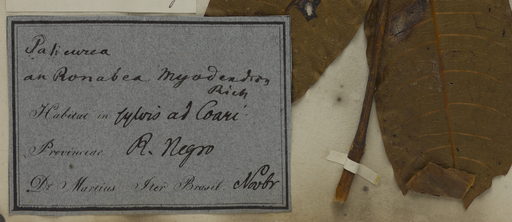 Palicurea
an Ronabea Myodendron
Rich
Habitat in sylvis ad Coari
Provinciae R. Negro
Dr Martius Iter Brasil. Novbr